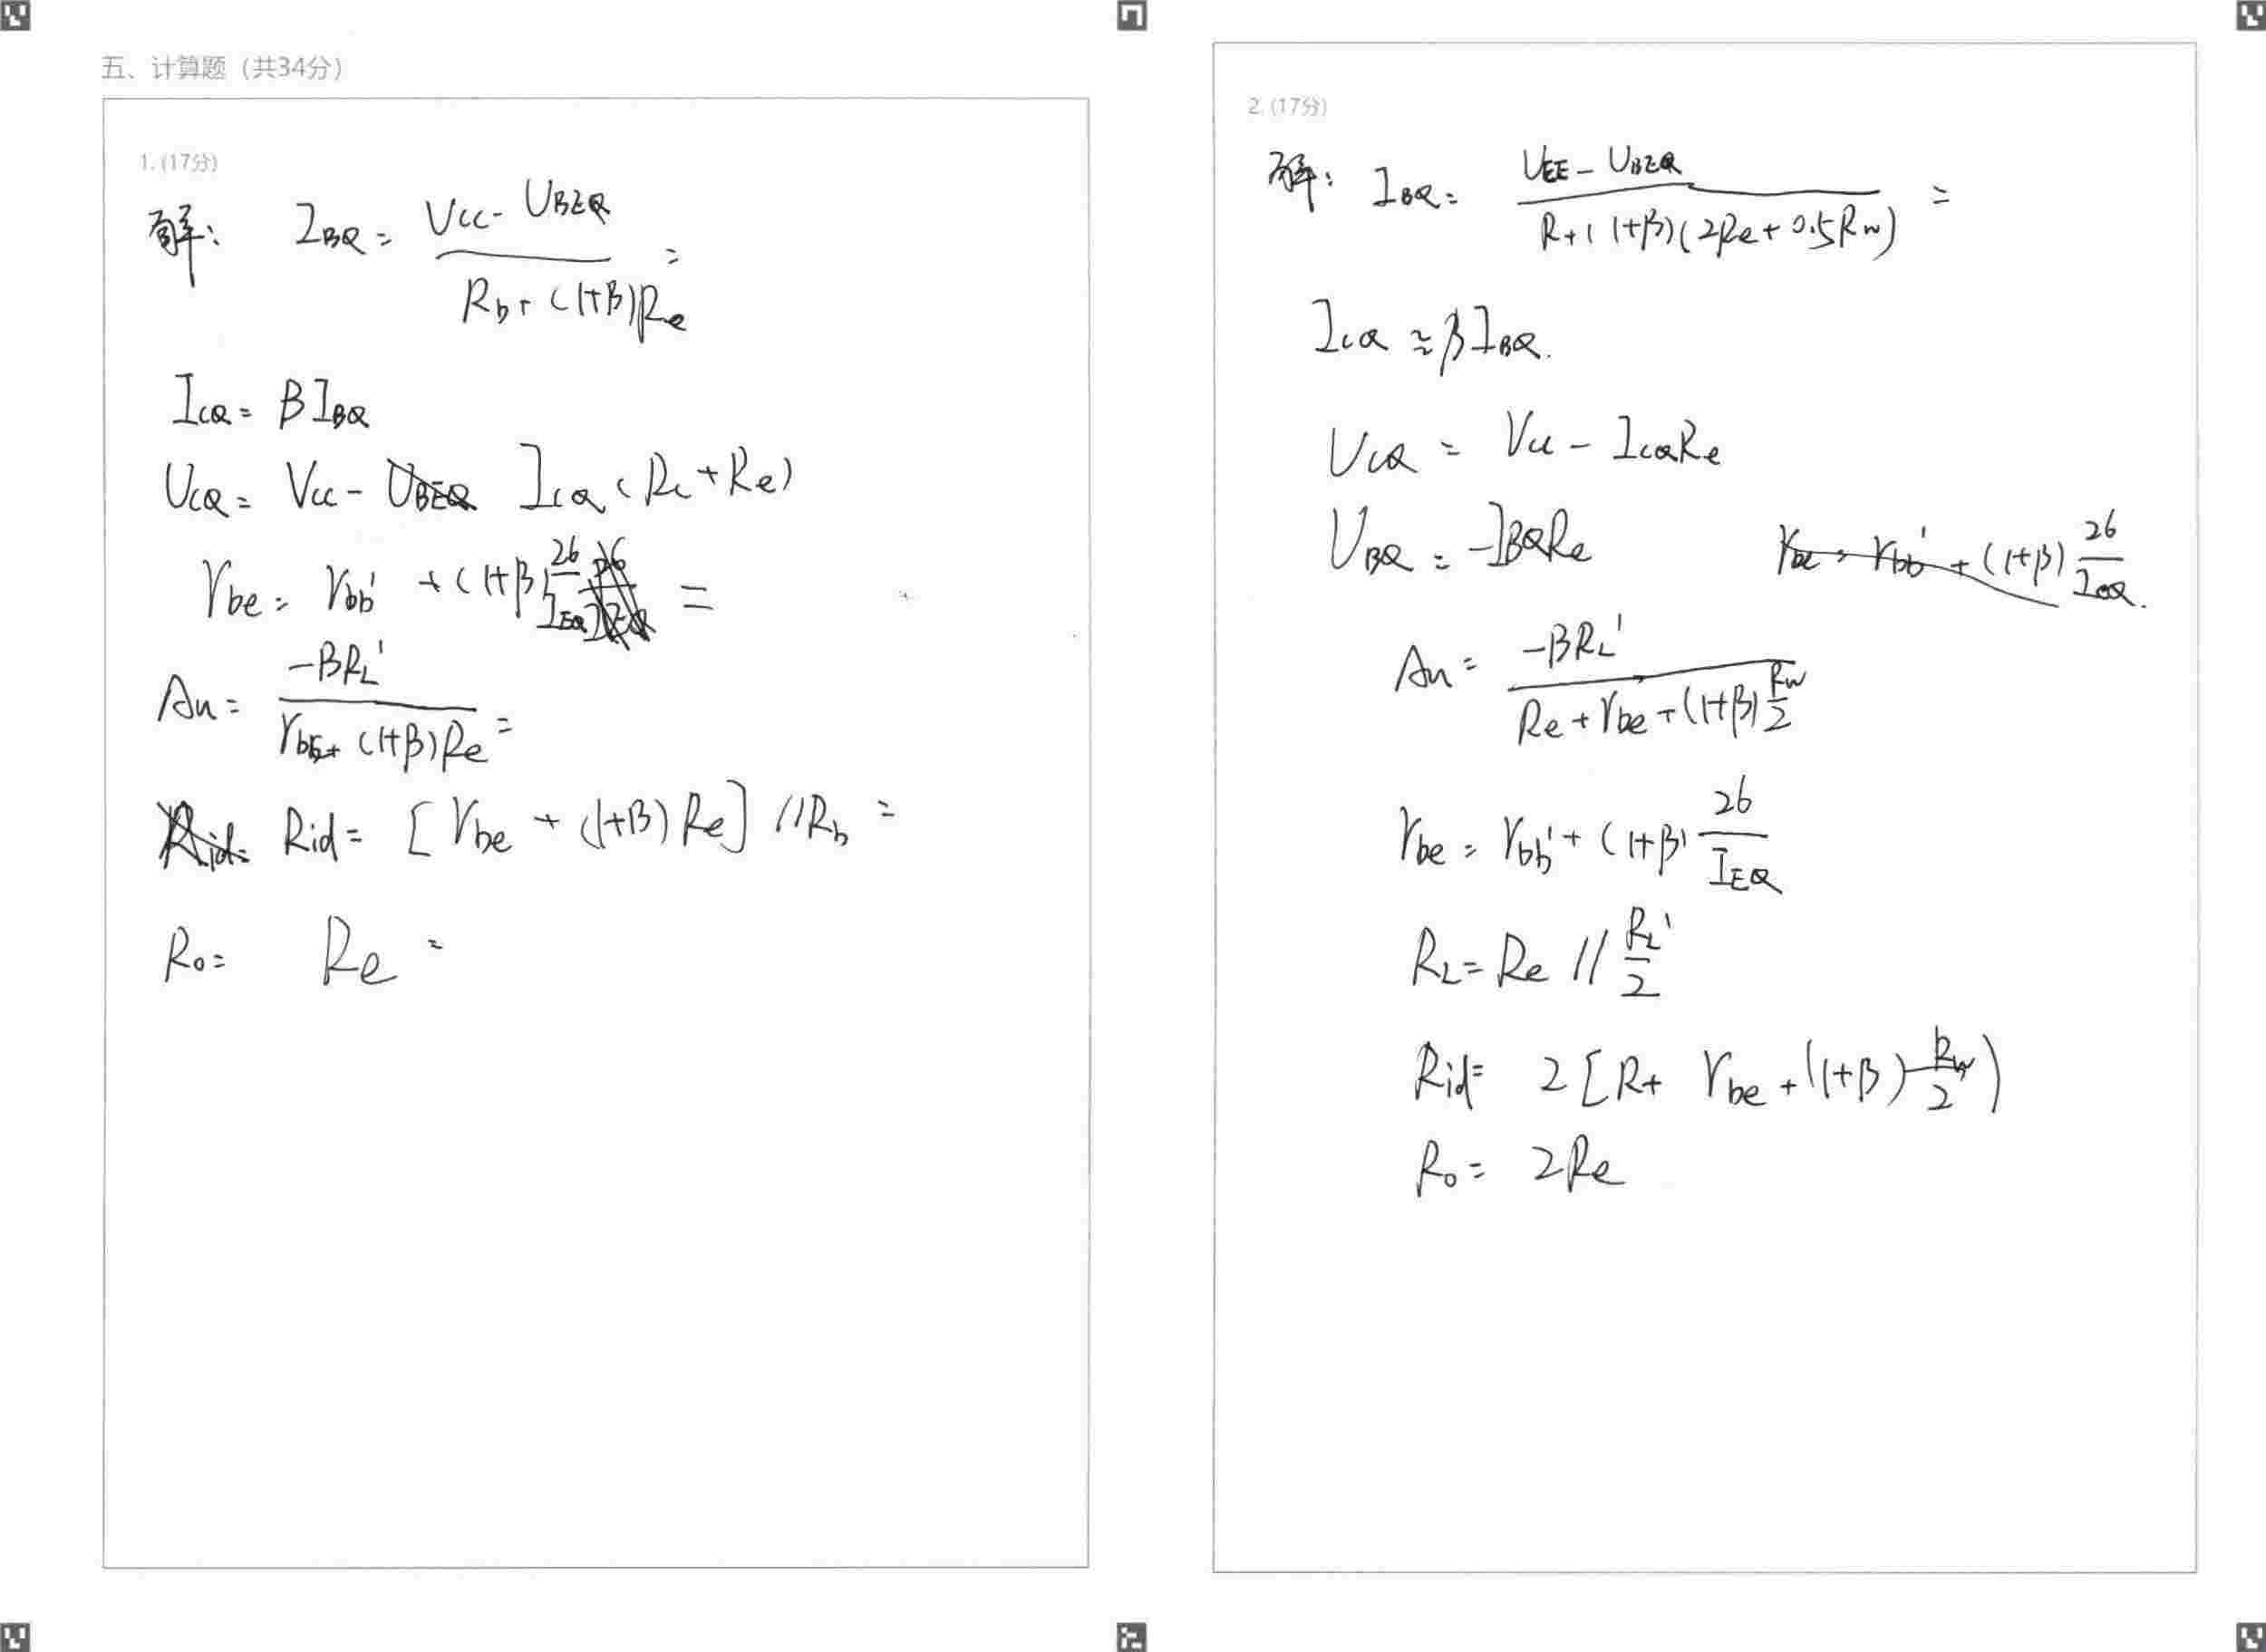 五、计算题（共34分）
1. (17分)
解： IBQ = (VCC - UBEQ) / (Rb + (1+β)Re) =
ICQ = βIBQ
UCQ = VCC - ICQ (Rc + Re)
rbe = rbb' + (1+β) 26/IEQ =
Au = -βRL' / (rbe + (1+β)Re) =
Rid = [rbe + (1+β) Re] // Rb =
Ro = Re =
2. (17分)
解： IBQ = (VEE - UBEQ) / (R + (1+β)(2Re + 0.5Rw)) =
ICQ ≈ βIBQ.
UCQ = VCC - ICQRe
UBQ = -IBQRe
Au = -βRL' / (Re + rbe + (1+β) Rw/2)
rbe = rbb' + (1+β) 26/IEQ
RL = Re // RL'/2
Rid = 2 [R + rbe + (1+β) Rw/2)
Ro = 2Re